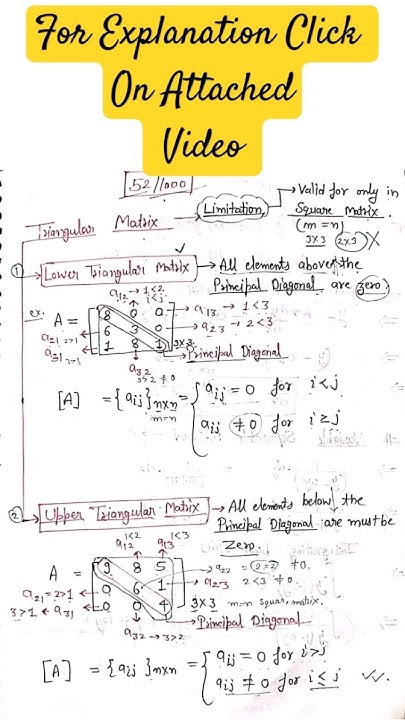 For Explanation Click
On Attached
Video
52/1000
Triangular Matrix → Limitation → Valid for only in
Square Matrix.
(m = n)
3x3 (2x3) X
① Lower Triangular Matrix → All elements above the
Principal Diagonal are zero.
a12 → 1<2
i<j
ex. A = [8 0 0 → a13 → 1<3
6 3 0 → a23 → 2<3
1 8 1] 3x3
a21 2>1
a31 3>1
a32
3>2 ≠0
Principal Diagonal
[A] = {aij}nxn = { aij = 0 for i<j
m=n
aij ≠ 0 for i≥j
② Upper Triangular Matrix → All elements below the
Principal Diagonal are must be
Zero.
1<2 1<3
a12 a13
A = [9 8 5 → a22 = (2=2) ≠0.
0 6 1 → a23 2<3 ≠0.
0 0 4] 3x3 m=n squar, matrix.
a21 = 2>1
3>1 ← a31
a32 → 3>2
Principal Diagonal
[A] = {aij}nxn = { aij = 0 for i>j
aij ≠ 0 for i≤j